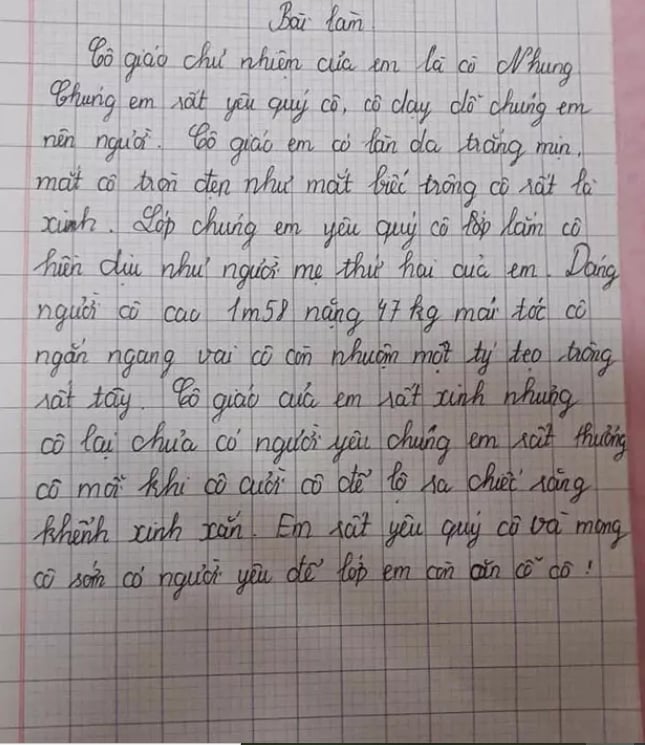 Bài làm
Cô giáo chủ nhiệm của em là cô Nhung
Chúng em rất yêu quý cô, cô dạy dỗ chúng em
nên người. Cô giáo em có làn da trắng mịn,
mắt cô tròn đen như mắt biếc trông cô rất là
xinh. Lớp chúng em yêu quý cô lắm cô
hiền dịu như người mẹ thứ hai của em. Dáng
người cô cao 1m58 nặng 47 kg mái tóc cô
ngắn ngang vai cô còn nhuộm một tý teo trông
rất tây. Cô giáo của em rất xinh nhưng
cô lại chưa có người yêu chúng em rất thương
cô mỗi khi cô cười cô để lộ ra chiếc răng
khểnh xinh xắn. Em rất yêu quý cô và mong
cô sớm có người yêu để lớp em còn ăn cỗ cô!